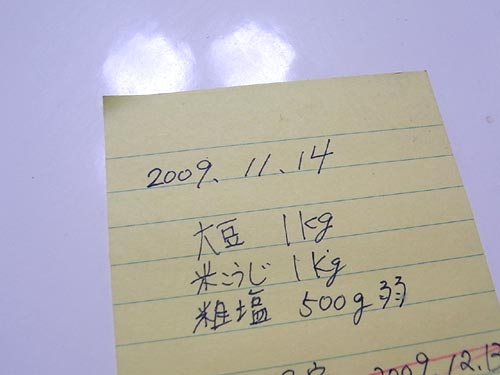 2009. 11. 14
大豆 1kg
米こうじ 1kg
粗塩 500g弱
2009.12.12